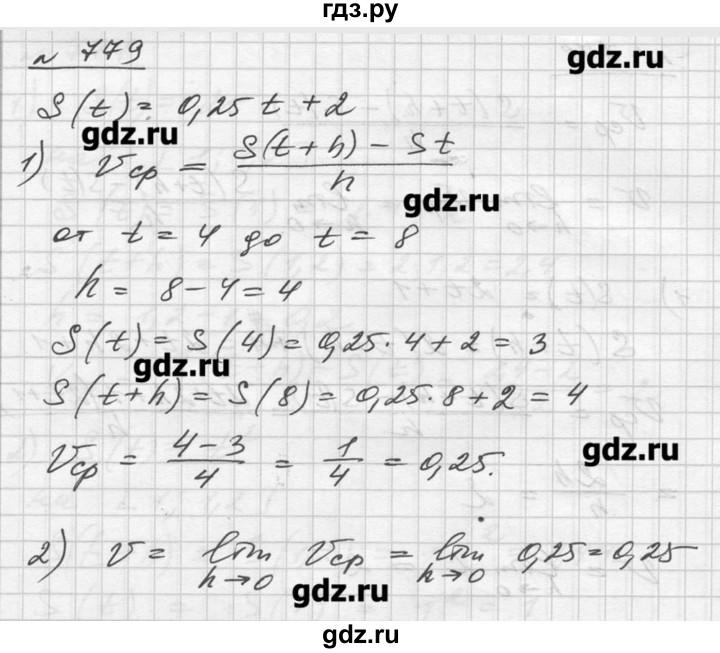 гдз.ру
№ 779
gdz.ru
S(t) = 0,25t + 2
gdz.ru
1) Vср = (S(t+h) − St)/h
gdz.ru
от t = 4 до t = 8
h = 8 − 4 = 4
S(t) = S(4) = 0,25·4 + 2 = 3
gdz.ru
S(t+h) = S(8) = 0,25·8 + 2 = 4
Vср = (4−3)/4 = 1/4 = 0,25.
gdz.ru
2) V = lim h→0 Vср = lim h→0 0,25 = 0,25
gdz.ru
gdz.ru